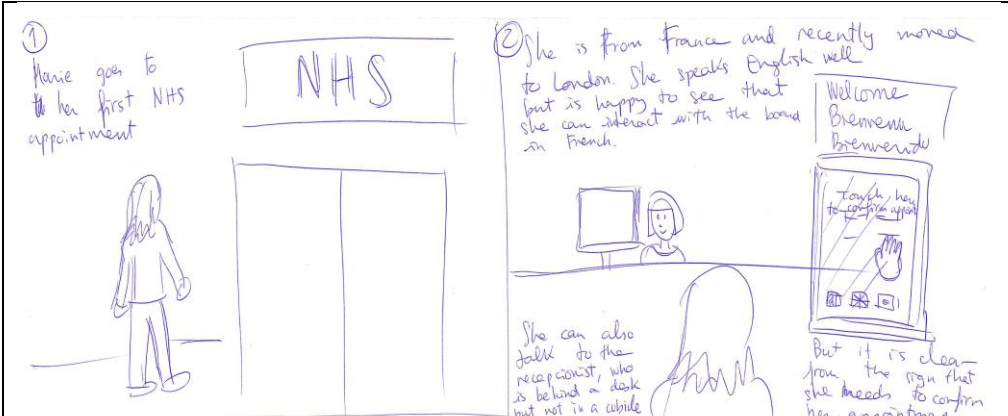 1
Marie goes to
her first NHS
appointment
NHS
2
She is from France and recently moved
to London. She speaks English well
but is happy to see that
she can interact with the board
in French.
Welcome
Bienvenu
Bienvenido
touch here
to confirm appoint
She can also
talk to the
recepcionist, who
is behind a desk
but not in a cubicle
But it is clear
from the sign that
she needs to confirm
her appointment